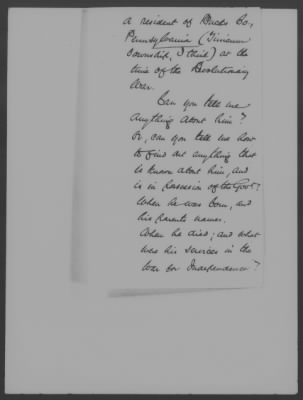 a resident of Bucks Co,
Pennsylvania (Tinicum
Township, I think) at the
time of the Revolutionary
War.
Can you tell me
anything about him?
Or, can you tell me how
to find out anything that
is known about him, and
is in possession of the Gov't?
When he was born, and
his parents names.
When he died; and what
were his services in the
War for Independence?